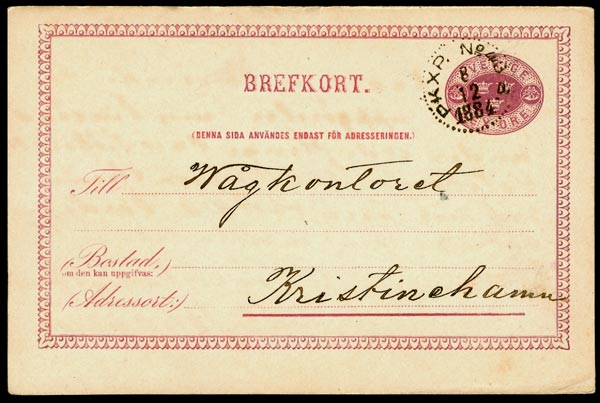 PKXP. No
8
12
1884
SVERIGE
BREFKORT.
(DENNA SIDA ANVÄNDES ENDAST FÖR ADRESSERINGEN.)
Till Wågkontoret
(Bostad:)
om den kan uppgifvas:
(Adressort:) Kristinehamn